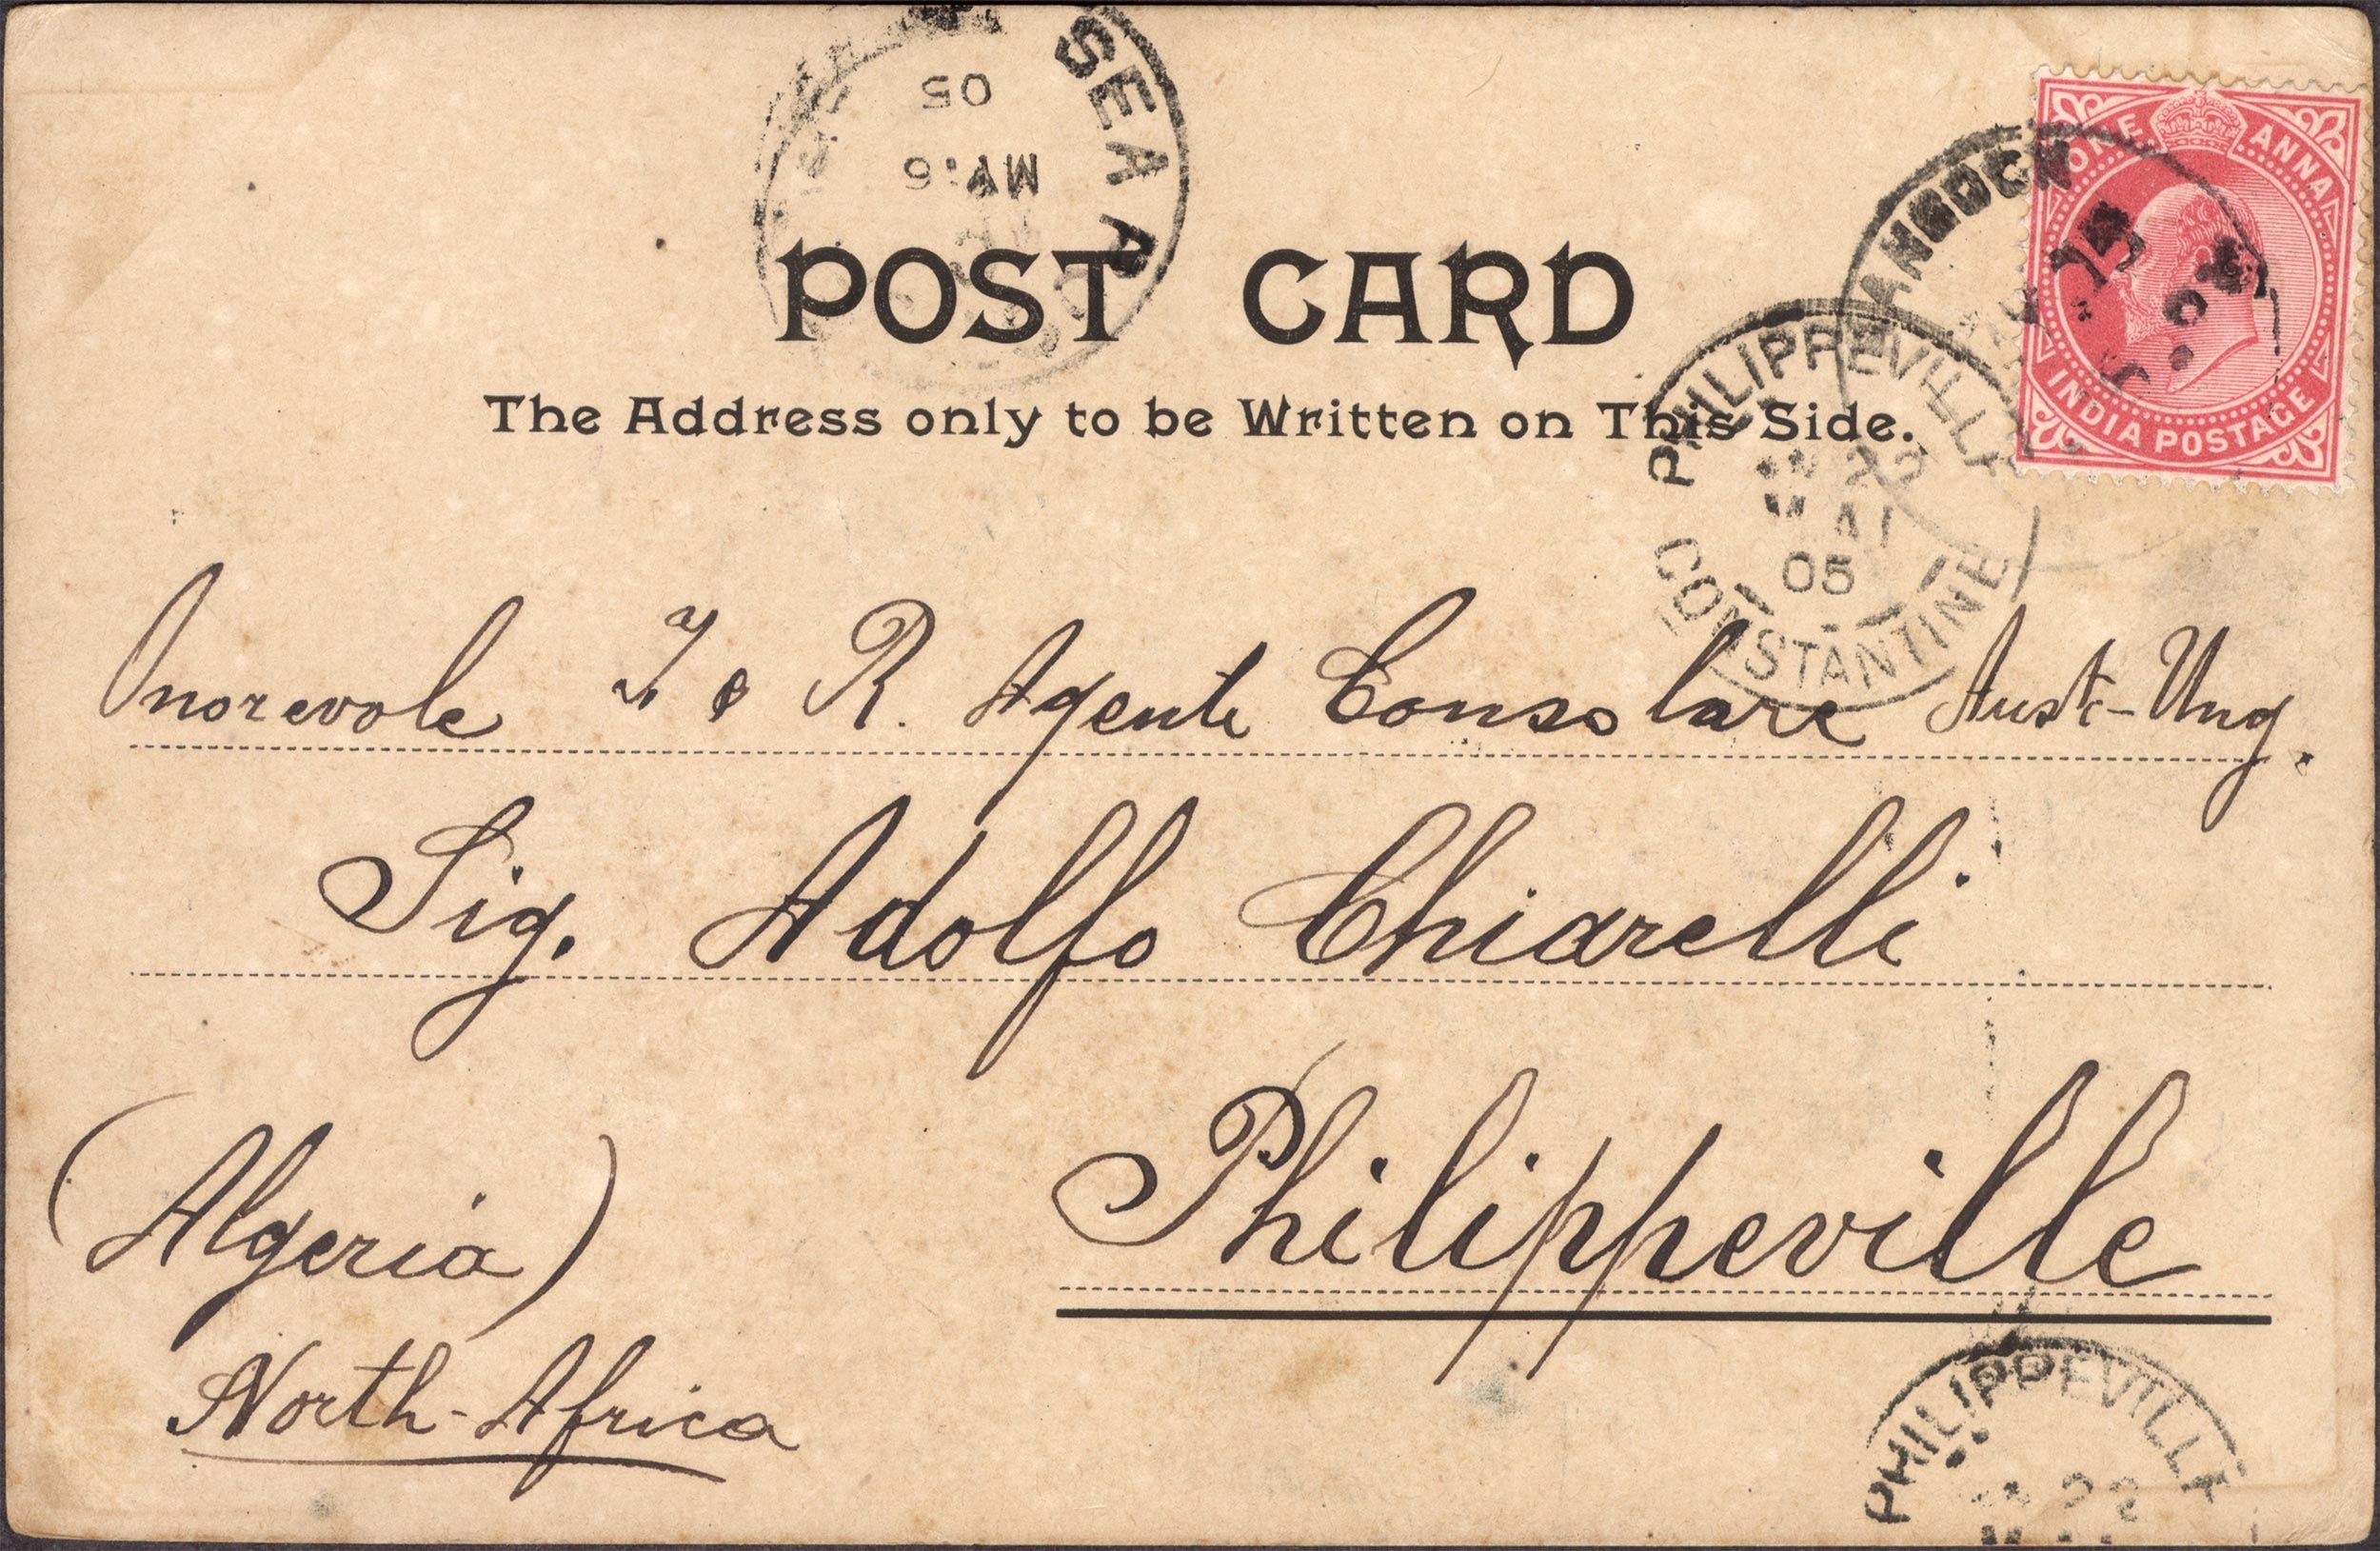 SEA
05
MY:6
ONE ANNA
INDIA POSTAGE
POST CARD
The Address only to be Written on This Side.
PHILIPPEVILLE
22
MAI
05
CONSTANTINE
Onorevole I e R. Agente Consolare Aust-Ung.
Sig. Adolfo Chiarelli
Philippeville
(Algeria)
North-Africa
PHILIPPEVILLE
22